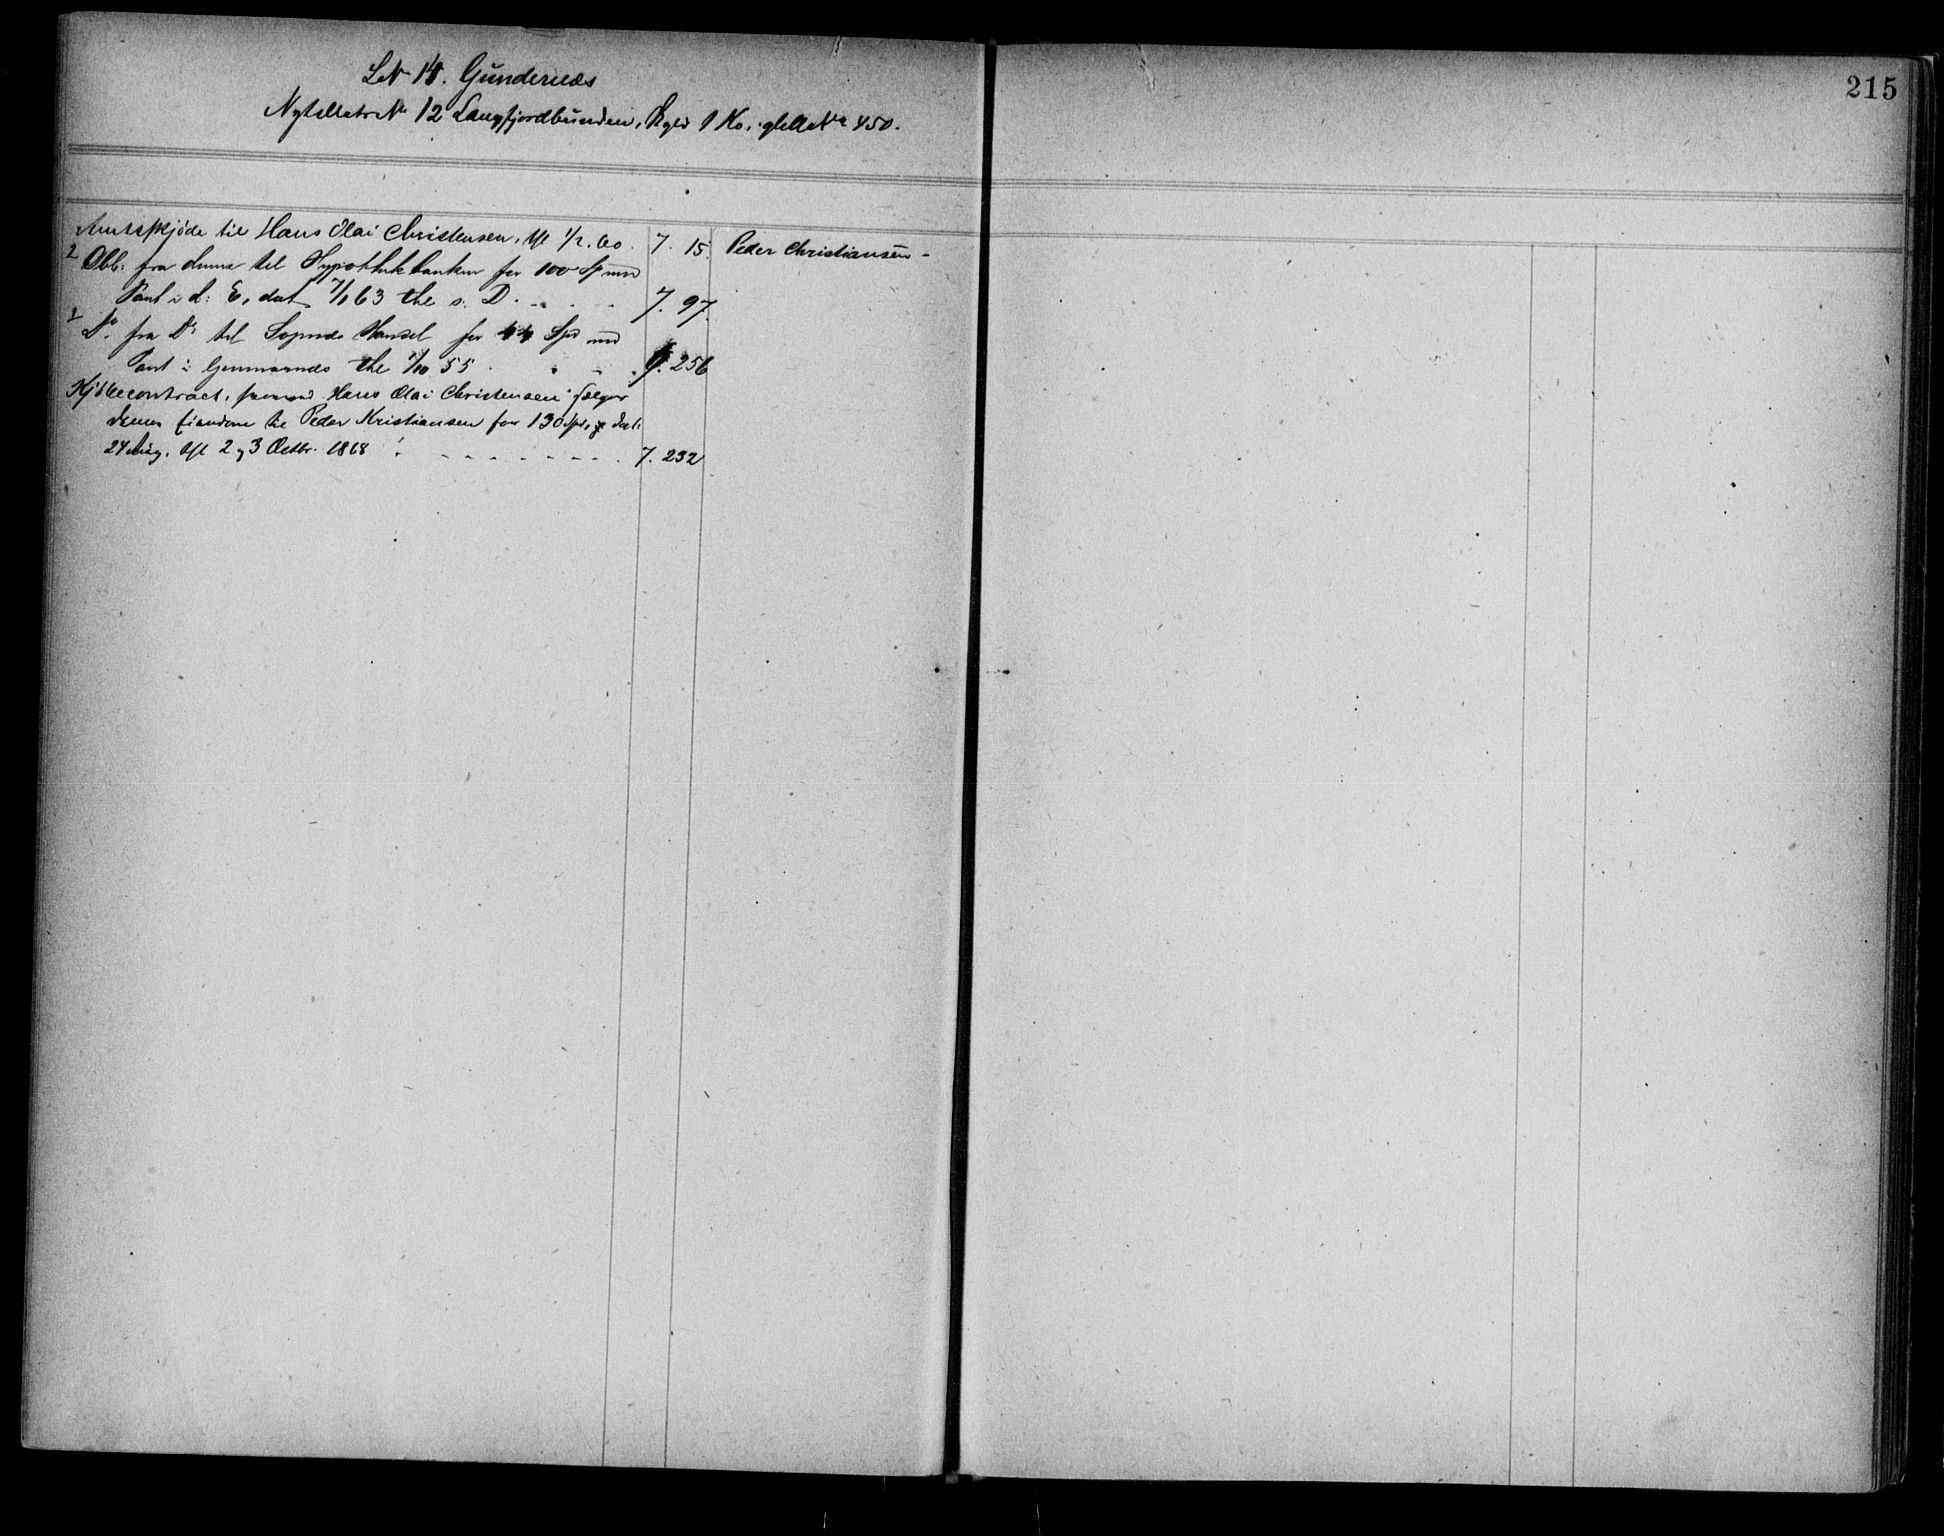 215
LN 14. Gundernæs
Nyt Matr No 12 Langfjordbunden, Skyld 1 Ko. gl No 450.
Amtsskjøde til Hans Olai Christensen, thl 1/2. 60. 7. 15. Peder Christiansen -
2 Obl: fra denne til Hypothekbanken for 100 Sp mod
Pant i d: E, dat 7/1 63 thl s. D. 7. 97.
1 Do. fra Do til Hansel for 44 Spd mod
Pant i thl 55 256
Kjøbecontract, hvorved Hans Olai Christensen sælger
denne Eiendom til Peder Kristiansen for 130 Spd, dat:
24 Aug. thl 2 og 3 Octbr. 1868 7. 232